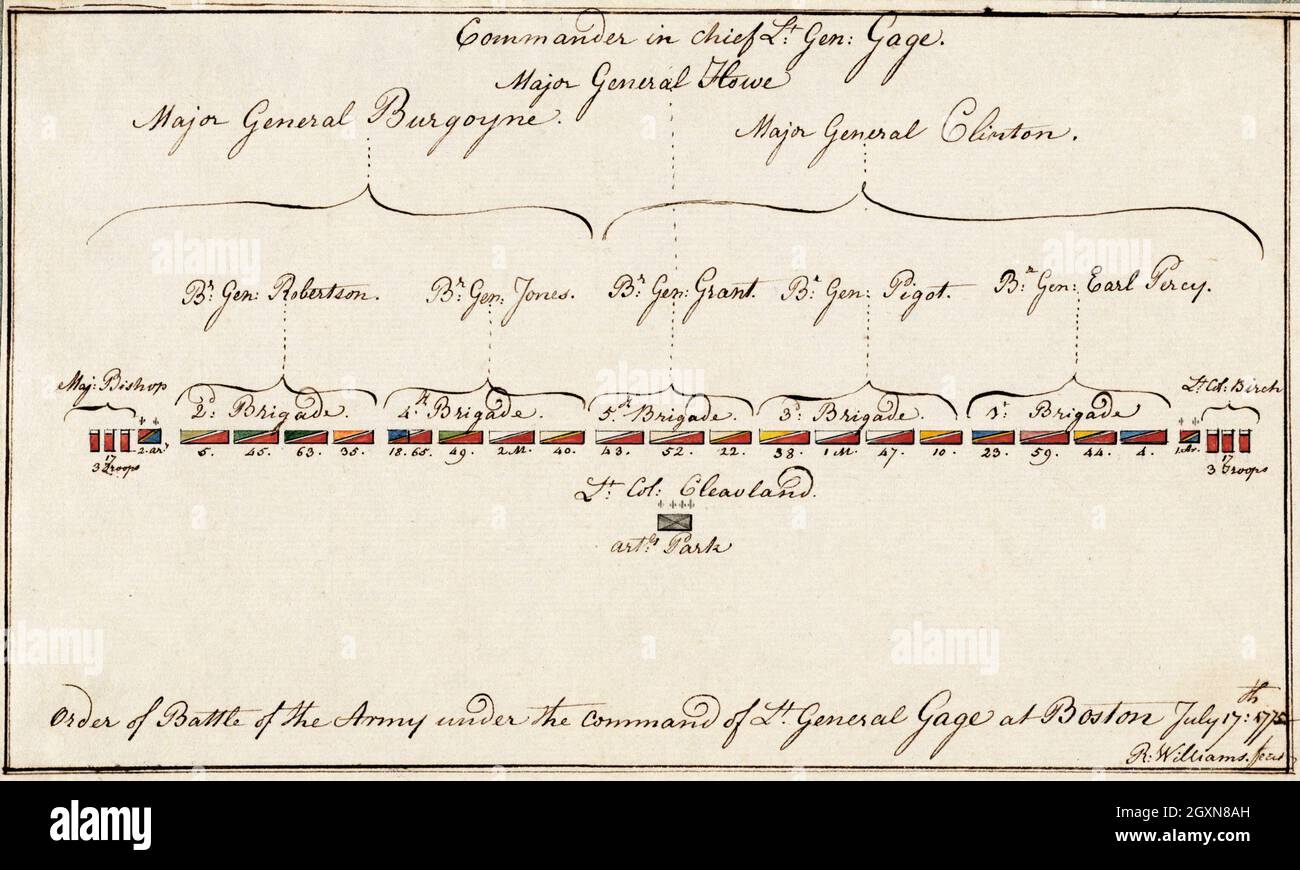 Commander in chief Lt: Gen: Gage.
Major General Howe
Major General Burgoyne.
Major General Clinton.
Br: Gen: Robertson.
Br: Gen: Jones.
Br: Gen: Grant.
Br: Gen: Pigot.
Br: Gen: Earl Percy.
Maj: Bishop
2d: Brigade.
4th: Brigade.
5th Brigade.
3d: Brigade.
1st Brigade
Lt: Col: Birch
17
3 Troops
2. ar.
5. 45. 63. 35.
18. 65. 49. 2. M. 40.
43. 52. 22.
38. 1 M. 47. 10.
23. 59. 44. 4.
1 Ar.
17
3 Troops
Lt: Col: Cleavland.
Art:ry Park
Order of Battle of the Army under the command of Lt: General Gage at Boston July 17:th 1775
R: Williams. fecit
alamy
alamy
Image ID: 2GXN8AH
www.alamy.com